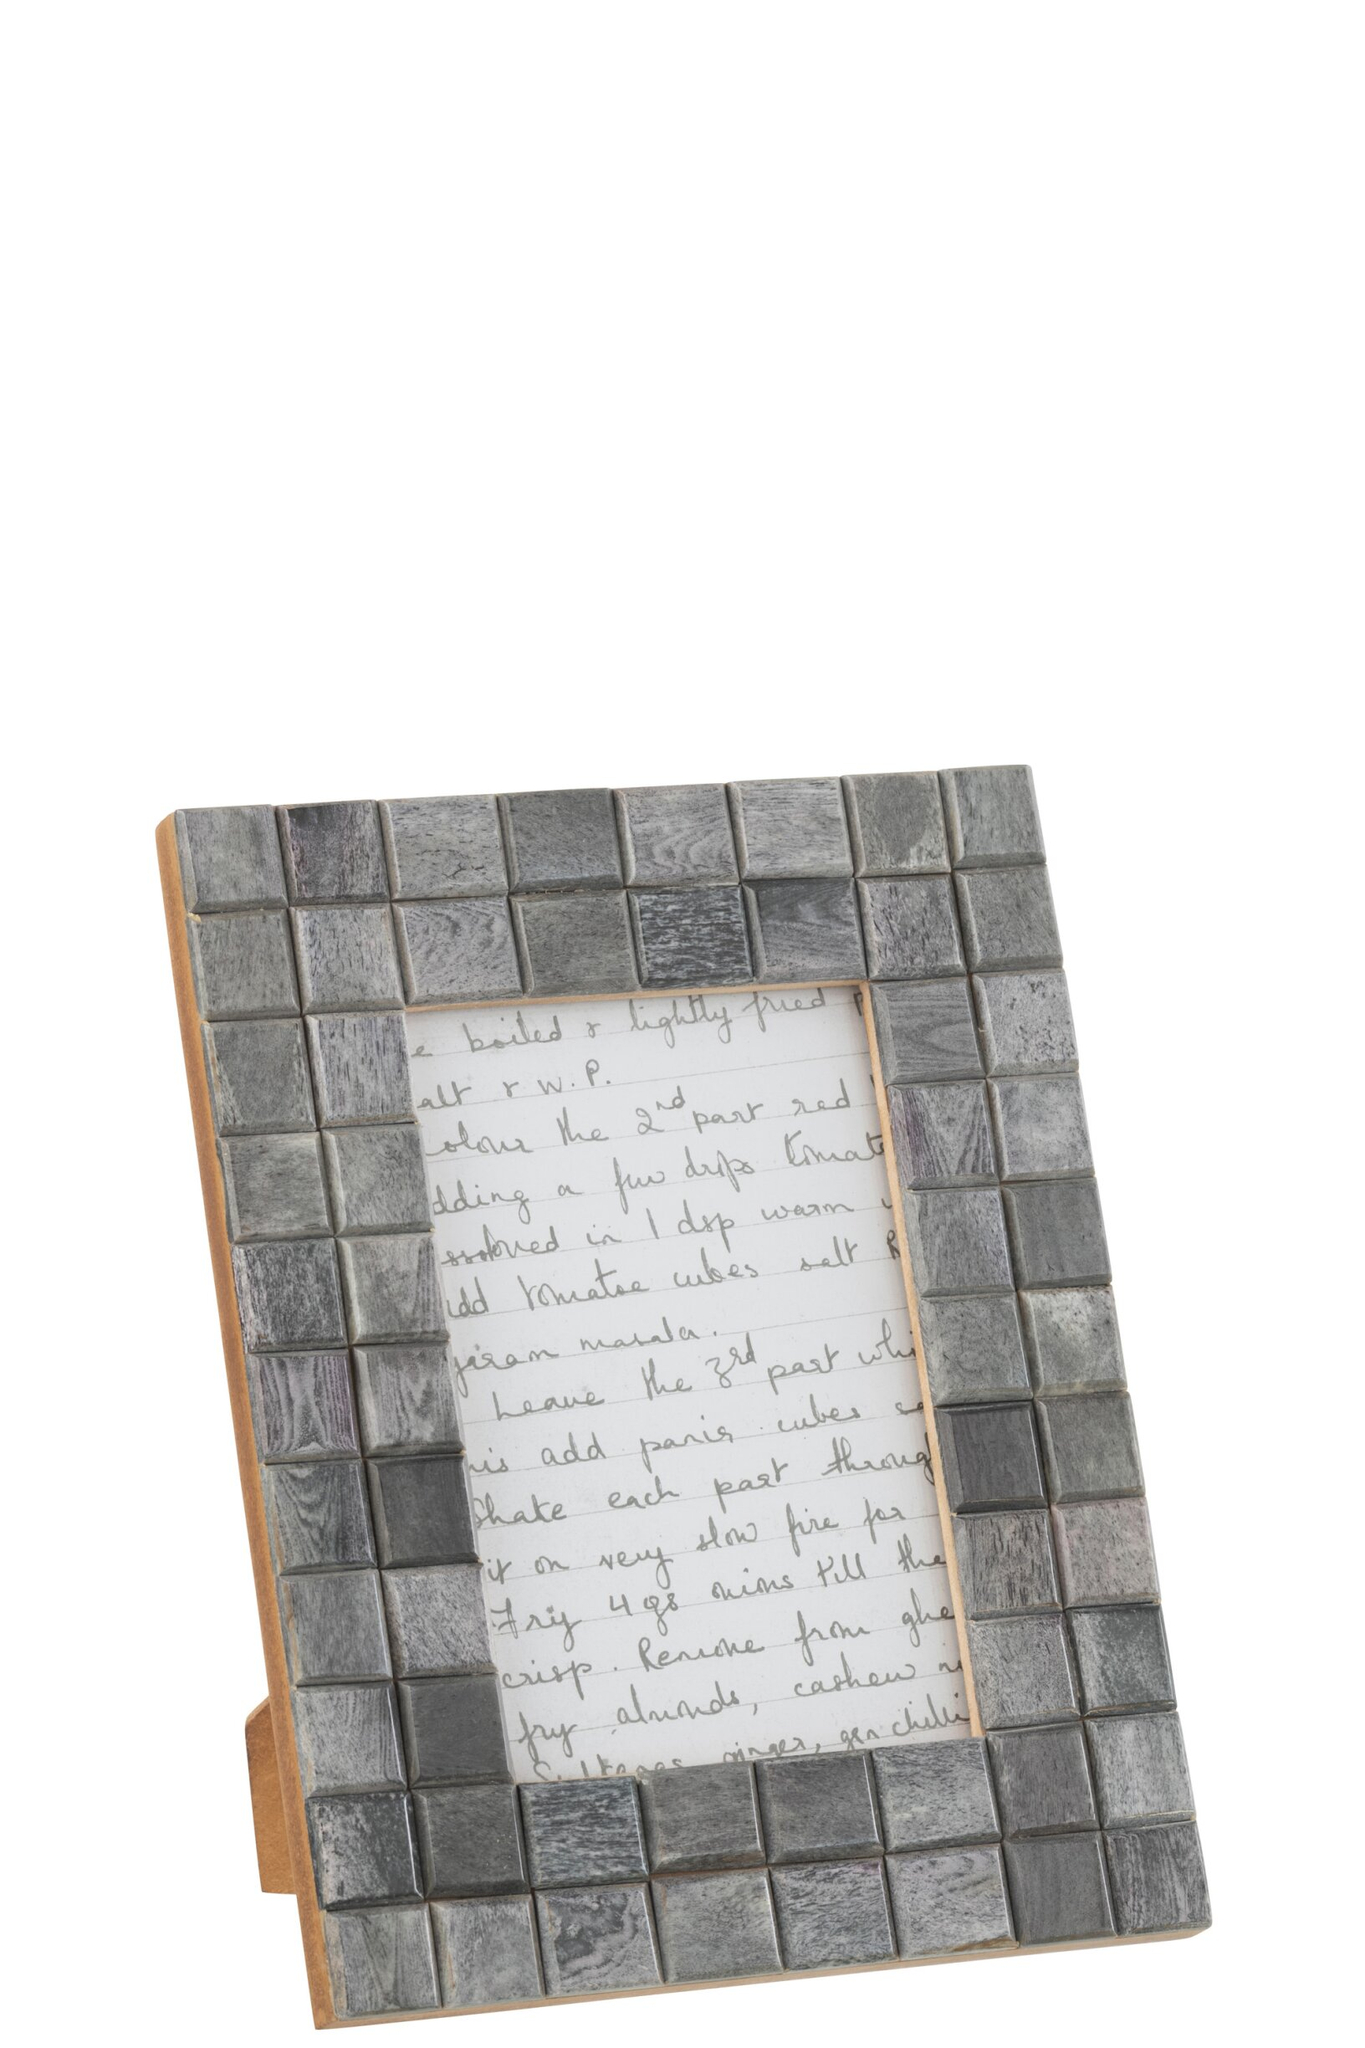 e boiled & lightly fried
alt & W.P.
olour the 2nd part red
dding a few drops tomato
ssolved in 1 dsp warm
dd tomatoe cubes salt
garam masala.
Leave the 3rd part whi
his add panir cubes sa
Shake each part throug
it on very slow fire for
Fry 4 gs onions till the
crisp. Remove from ghe
fry almonds, cashew n
ginger, grn chilli